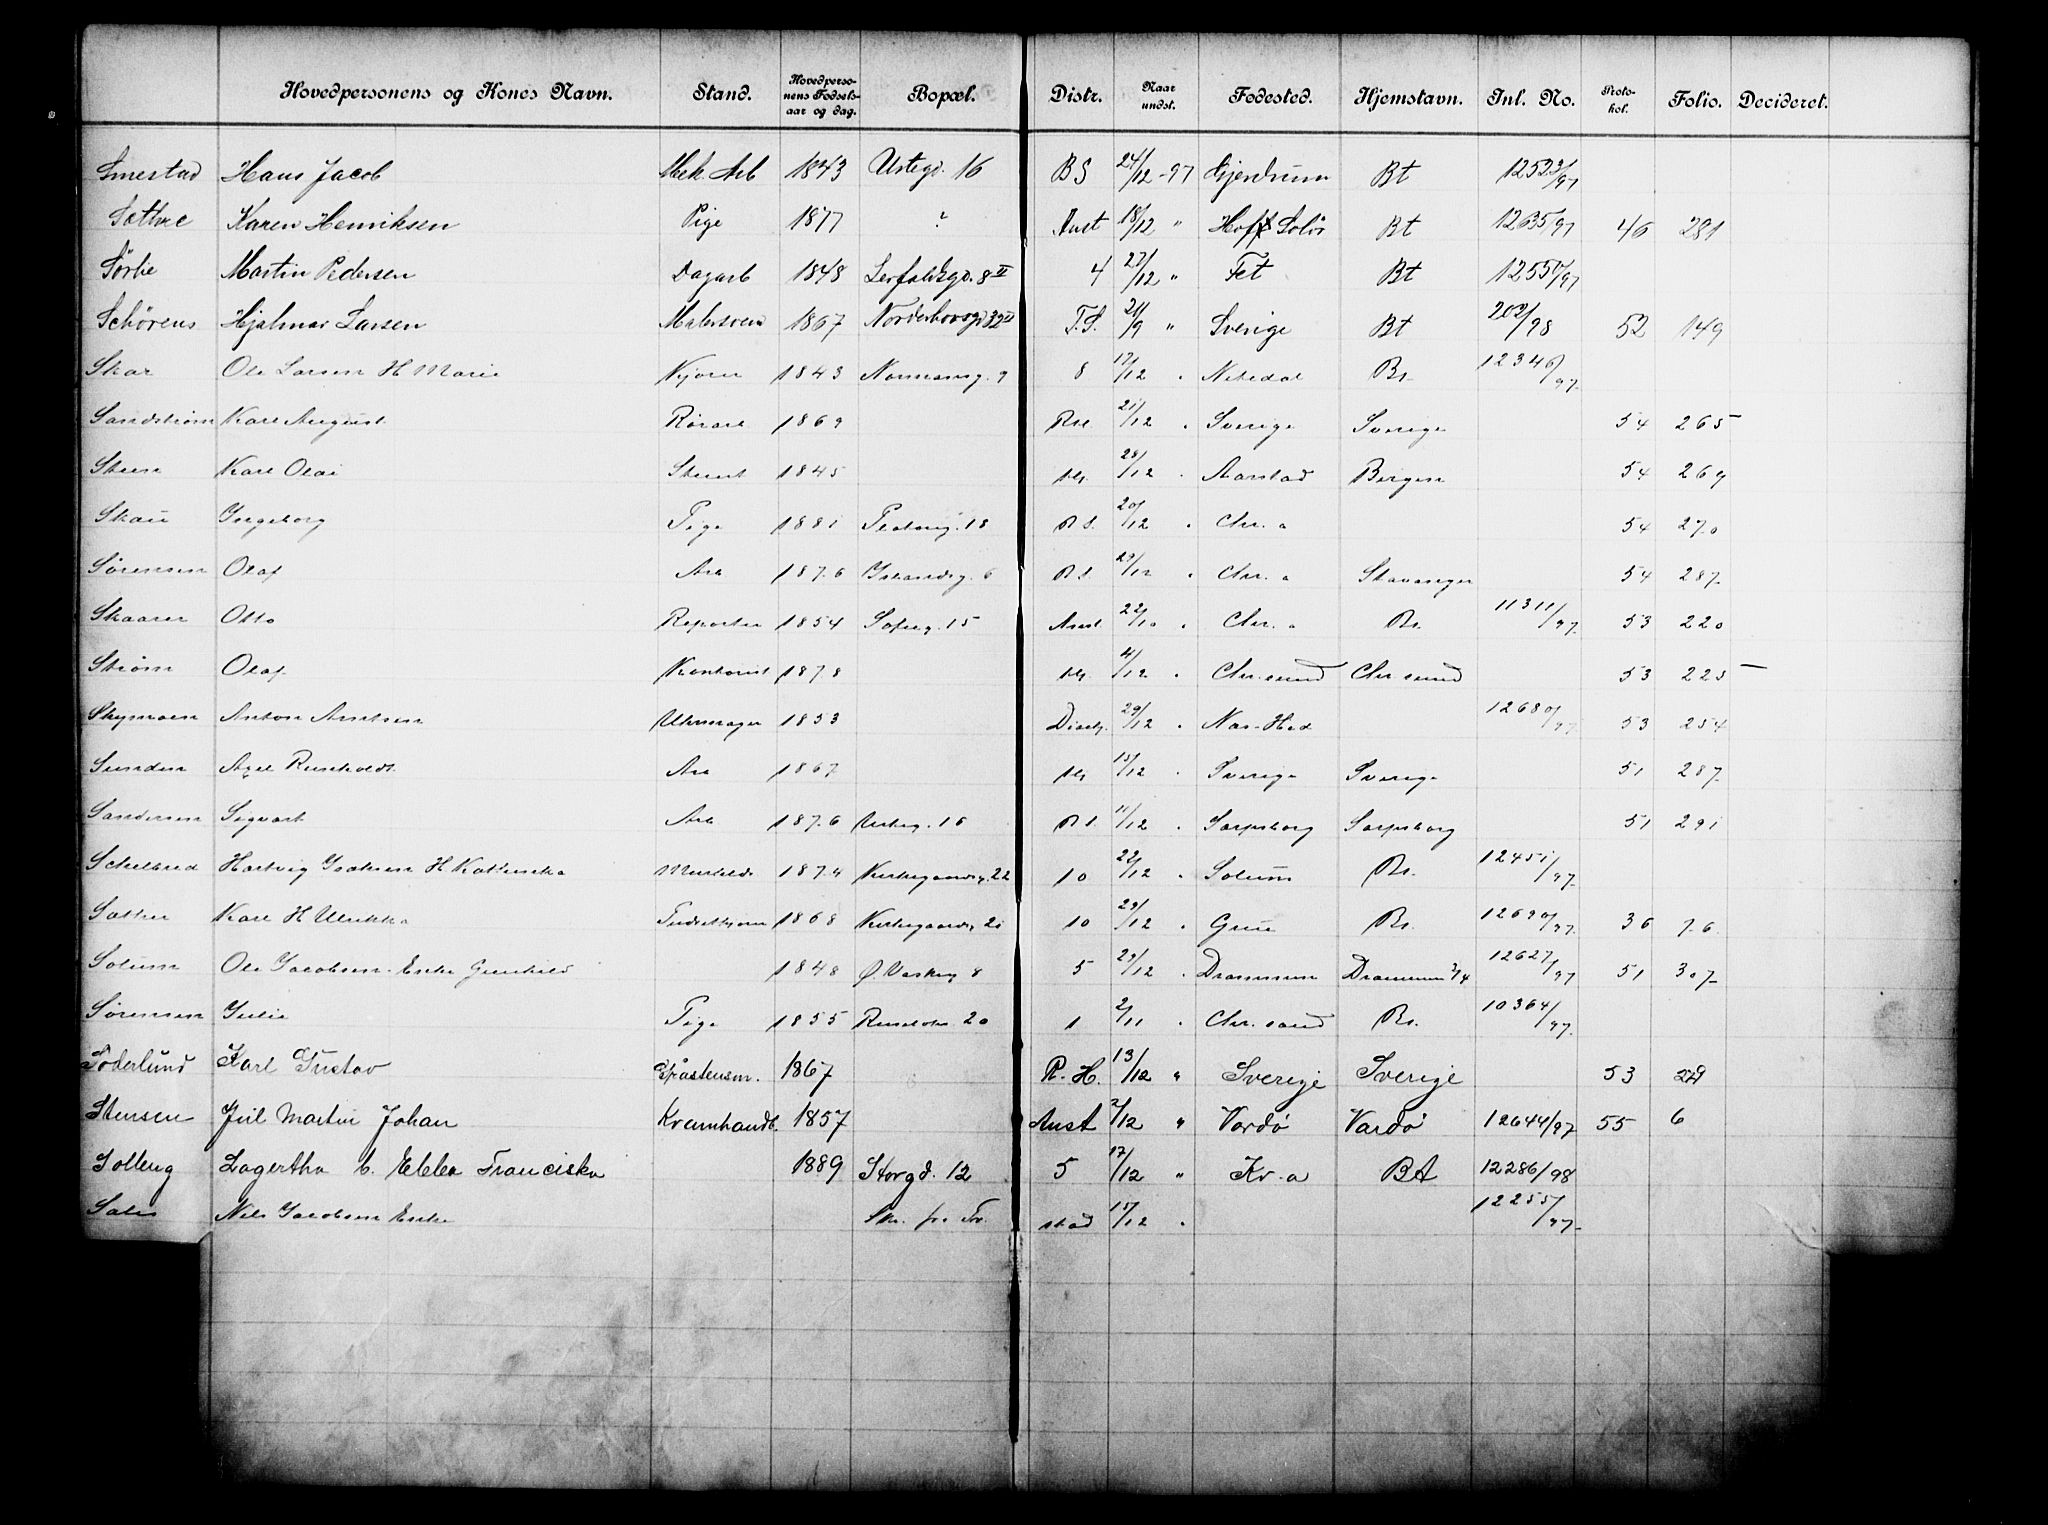 Hovedpersonens og Kones Navn. Stand. Hovedpersonens Fødselsaar og dag. Bopæl. Distr. Naar undst. Fødested. Hjemstavn. Inl. No. Protokol. Folio. Decideret.
Smestad Hans Jacob Mek. Arb 1843 Ustegd. 16 BS 24/12 -97 Gjerdrum Bt
Sæthre Karen Henriksen Pige 1877 ? Anst 18/12 " Hoff Solør Bt 12635/97 46 281
Sørlie Martin Pedersen Dagarb 1848 8 II 4 27/12 " Fet Bt
Schørens Hjalmar Larsen Malersvend 1867 T.S. 21/9 " Sverige Bt 202/98 52 149
Skar Ole Larsen H Marie Kjører 1843 Normansg. 9 8 17/12 " Nitedal Bt. 12346/97.
Sandstrøm Karl August Rørarb 1869 21/12 " Sverige Sverige 54 265
Steen Karl Olai 1845 28/12 " Aarstad Bergen 54 269
Skau Ingeborg Pige 1881 18 B S. 20/12 " Chr. a 54 270
Sørensen Olaf Arb 1876 6 B S. 29/12 " Chr. a Stavanger 54 287
Skaarer Otto Reporter 1854 Sofieg. 15 Anst. 22/10 " Chr. a Bt. 11311/97. 53 220
Strøm Olaf Kontorist 1878 4/12 " Chr. sund Chr sund 53 225
Skymoen Anton Arntsen Uhrmager 1853 29/12 " Næs-Hed 12680/97 53 254
Sunden Axel Reinholdt Arb 1867 15/12 " Sverige Sverige 51 287
Sandersen Sigvart Arb 1876 Usteg. 16 B S. 11/12 " Sarpsborg Sarpsborg 51 291
Hartvig Isaksen H 1874 Kirkegaardsg. 22 10 22/12 " Solum Bt. 12451/97.
Sæther Karl H Ulrikka 1868 Kirkegaardsg 20 10 29/12 " Grue Bt. 12690/97. 36 76
Solum Ole Jacobsen Enke Gunhild 1848 Ø. Vaskeg 8 5 29/12 " Drammen Drammen 3/4 12627/97 51 307
Sørensen Julie Pige 1855 20 1 2/11 " Chr. sand Bt. 10364/97.
Söderlund Karl Gustav 1867 R. H. 13/12 " Sverige Sverige 53
Stensen Juil Martin Johan Kramhandl. 1857 Anst 2/12 " Vardø Vardø 12644/97 55 6
Solleug Lagertha b. Ebba Franciska 1889 Storgd. 12 5 17/12 " Kr. a Bt 12286/98
Nils Jacobsen Enke 15/12 " 12255/97.